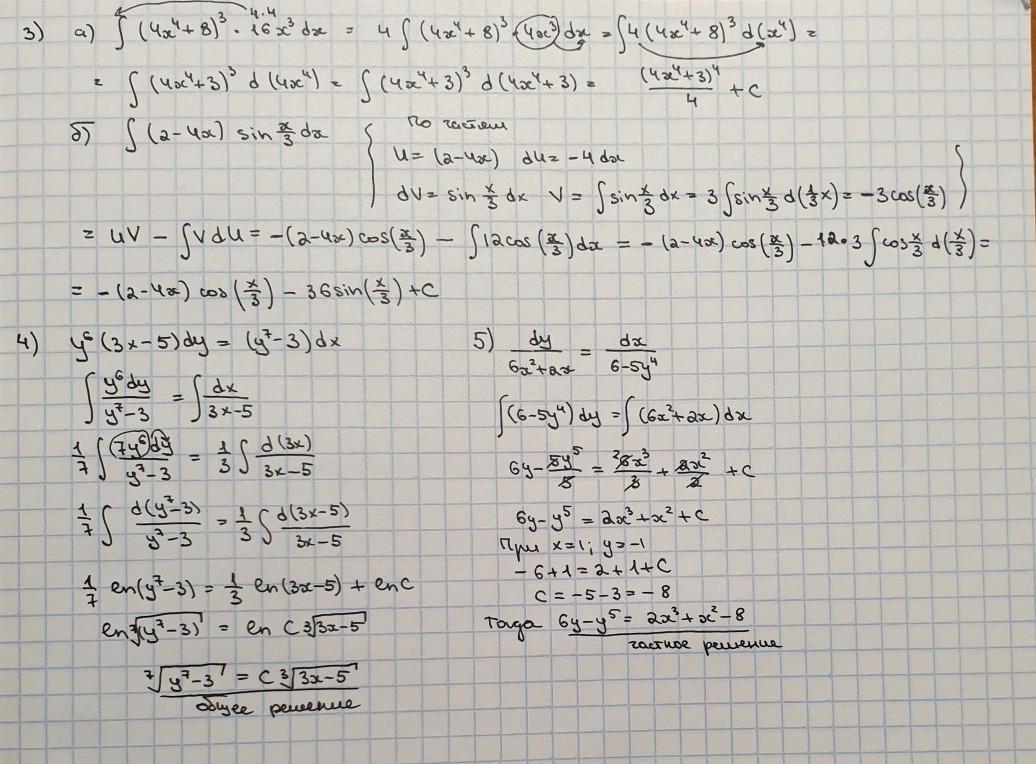 3) а) ∫ (4x⁴+8)³ · 16x³dx = 4 ∫ (4x⁴+8)³ · 4x³ dx = ∫4 (4x⁴+8)³ d(x⁴) =
4·4
= ∫ (4x⁴+3)³ d (4x⁴) = ∫ (4x⁴+3)³ d (4x⁴+3) = (4x⁴+3)⁴/4 + C
б) ∫ (2-4x) sin x/3 dx
По частям
U = (2-4x) dU = -4dx
dV = sin x/3 dx V = ∫sin x/3 dx = 3 ∫sin x/3 d(1/3 x) = -3cos(x/3)
= UV - ∫VdU = -(2-4x) cos(x/3) - ∫12cos(x/3)dx = -(2-4x) cos(x/3) - 12·3 ∫cos x/3 d(x/3) =
= -(2-4x) cos(x/3) - 36sin(x/3) + C
4) y⁶(3x-5)dy = (y⁷-3)dx
∫ y⁶dy/(y⁷-3) = ∫ dx/(3x-5)
1/7 ∫ 7y⁶dy/(y⁷-3) = 1/3 ∫ d(3x)/(3x-5)
1/7 ∫ d(y⁷-3)/(y⁷-3) = 1/3 ∫ d(3x-5)/(3x-5)
1/7 ln(y⁷-3) = 1/3 ln(3x-5) + lnC
ln ⁷√(y⁷-3) = ln C ³√(3x-5)
⁷√(y⁷-3) = C ³√(3x-5)
общее решение
5) dy/(6x²+2x) = dx/(6-5y⁴)
∫(6-5y⁴)dy = ∫(6x²+2x)dx
6y - 5y⁵/5 = ²6x³/3 + 2x²/2 + C
6y-y⁵ = 2x³+x²+C
При x=1; y=-1
-6+1 = 2+1+C
C = -5-3 = -8
Тогда 6y-y⁵ = 2x³+x²-8
частное решение